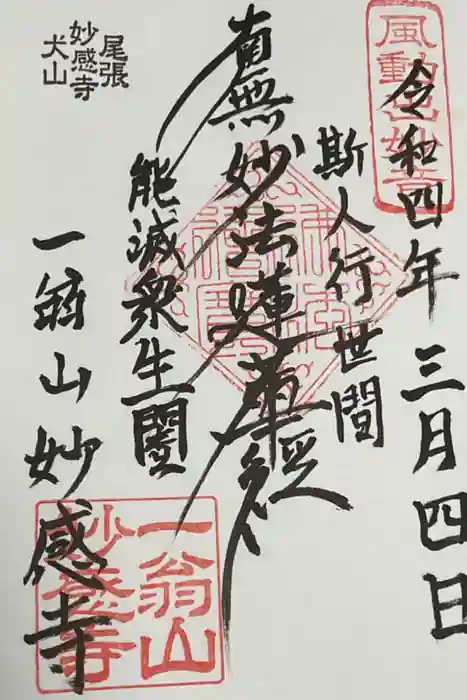 風動出妙音
令和四年三月四日
斯人行世間
南無妙法蓮華経
能滅衆生闇
尾張
妙感寺
犬山
一翁山妙感寺
一翁山
妙感寺